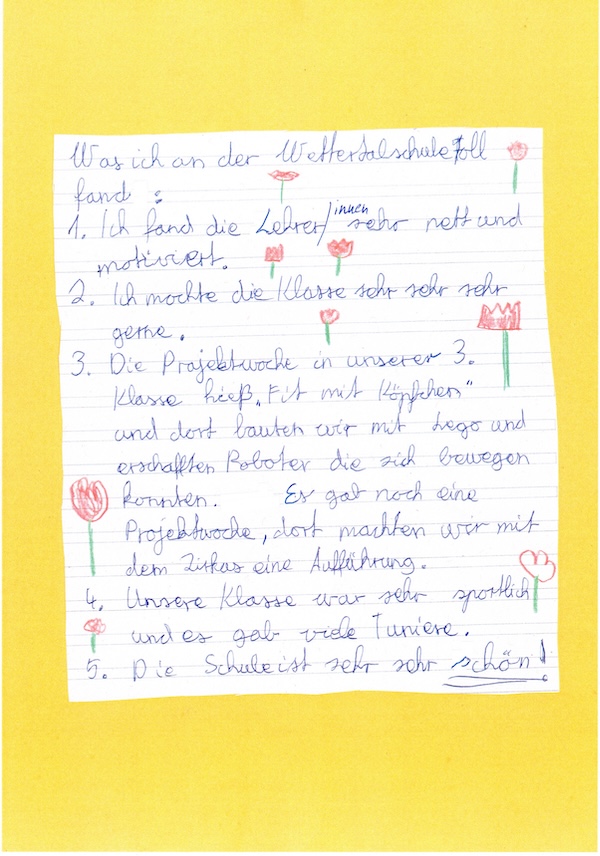 Was ich an der Wettertalschule toll
fand :
1. Ich fand die Lehrer/innen sehr nett und
motiviert.
2. Ich mochte die Klasse sehr sehr sehr
gerne.
3. Die Projektwoche in unserer 3.
Klasse hieß „Fit mit Köpfchen"
und dort bauten wir mit Lego und
erschafften Roboter die sich bewegen
konnten. Es gab noch eine
Projektwoche, dort machten wir mit
dem Zirkas eine Aufführung.
4. Unsere Klasse war sehr sportlich
und es gab viele Tuniere.
5. Die Schule ist sehr sehr schön!